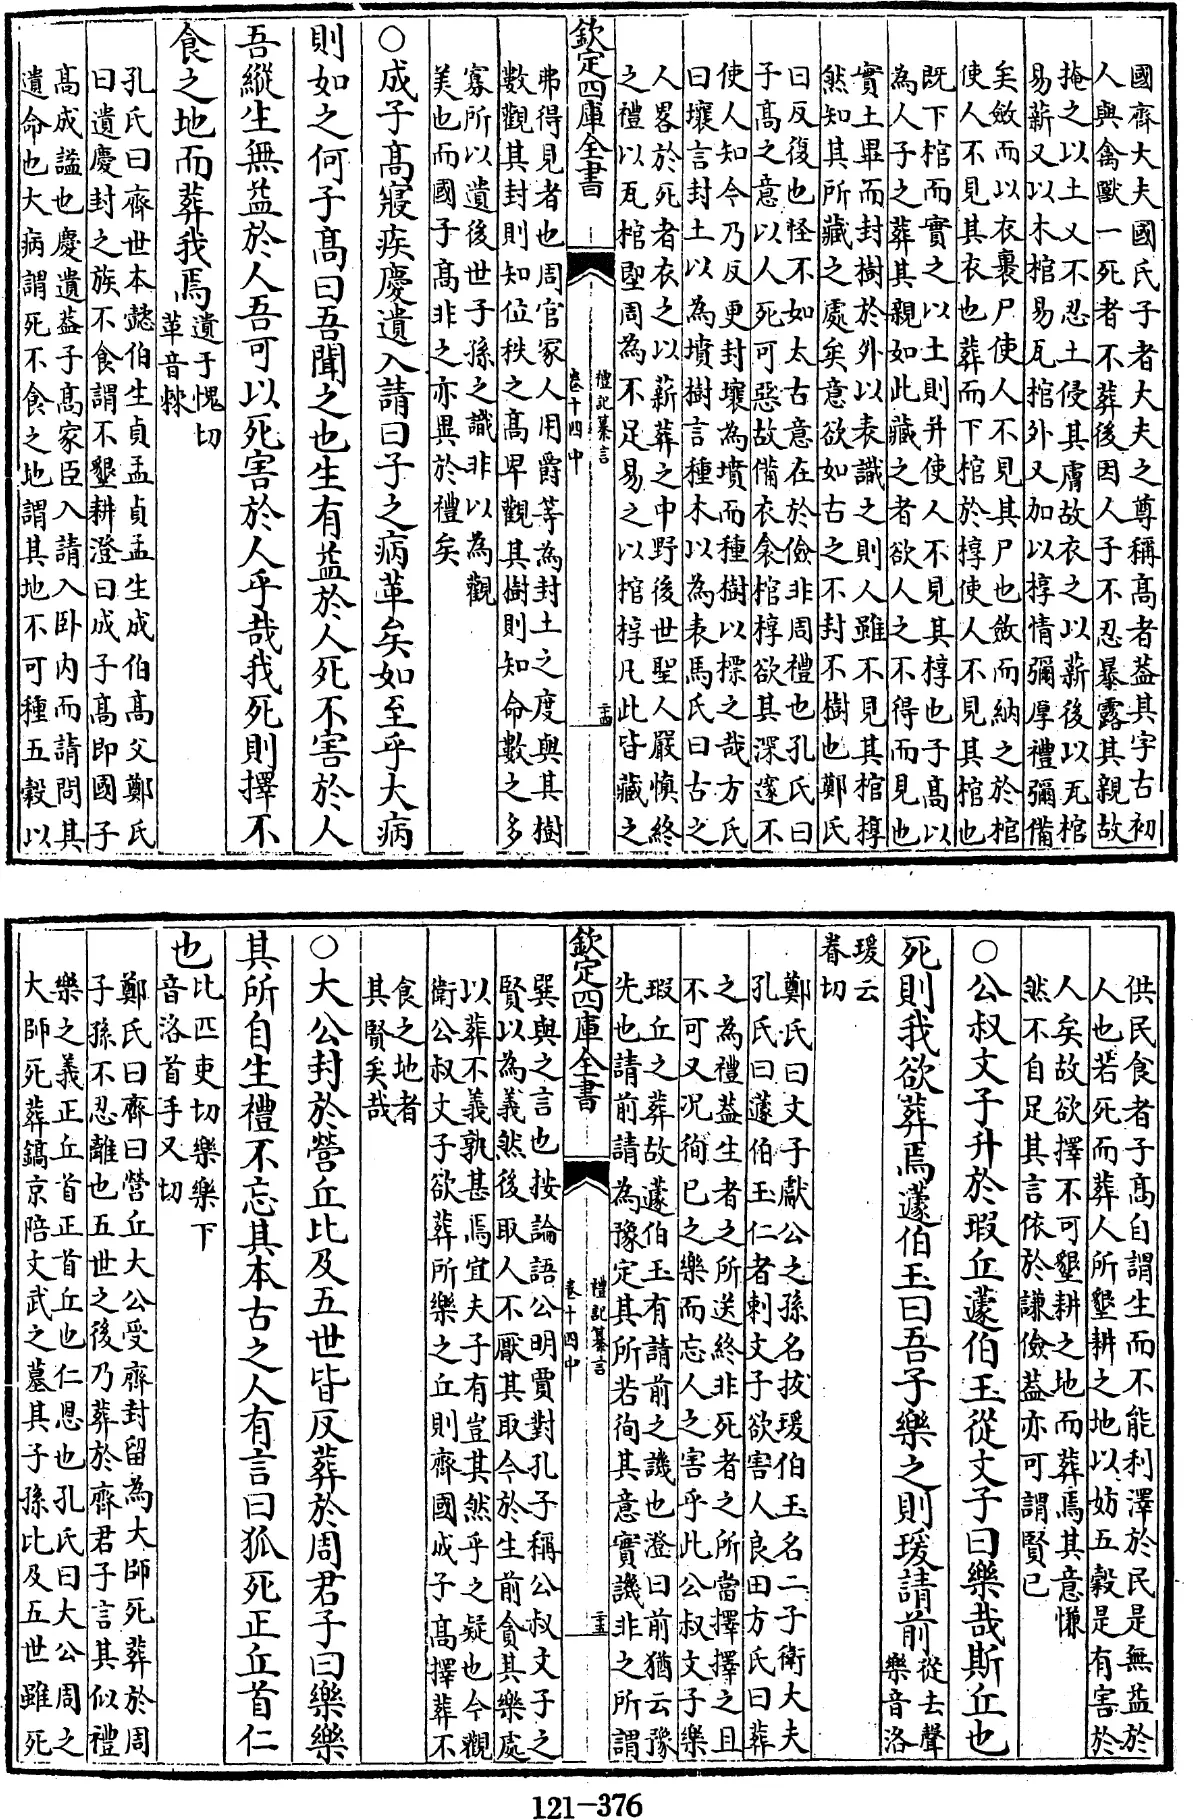 國齊大夫國氏子者大夫之尊稱髙者葢其字古初
人與禽獸一死者不葬後因人子不忍暴露其親故
掩之以土又不忍土侵其膚故衣之以薪後以瓦棺
易薪又以木棺易瓦棺外又加以椁情彌厚禮彌備
矣斂而以衣裹尸使人不見其尸也斂而納之於棺
使人不見其衣也葬而下棺於椁使人不見其棺也
既下棺而實之以土則并使人不見其椁也子髙以
為人子之葬其親如此藏之者欲人之不得而見也
實土畢而封樹於外以表識之則人雖不見其棺椁
然知其所藏之處矣意欲如古之不封不樹也鄭氏
曰反復也怪不如太古意在於儉非周禮也孔氏曰
子髙之意以人死可惡故備衣衾棺椁欲其深邃不
使人知今乃反更封壤為墳而種樹以標之哉方氏
曰壤言封土以為墳樹言種木以為表馬氏曰古之
人畧於死者衣之以薪葬之中野後世聖人嚴慎終
之禮以瓦棺堲周為不足易之以棺椁凡此皆藏之
欽定四庫全書
禮記纂言
卷十四中
二十四
弗得見者也周官冢人用爵等為封土之度與其樹
數觀其封則知位秩之髙卑觀其樹則知命數之多
寡所以遺後世子孫之識非以為觀
美也而國子髙非之亦異於禮矣
○成子髙寢疾慶遺入請曰子之病革矣如至乎大病
則如之何子髙曰吾聞之也生有益於人死不害於人
吾縱生無益於人吾可以死害於人乎哉我死則擇不
食之地而葬我焉
遺于愧切
革音棘
孔氏曰齊世本懿伯生貞孟貞孟生成伯髙父鄭氏
曰遺慶封之族不食謂不墾耕澄曰成子髙即國子
髙成諡也慶遺葢子髙家臣入請入卧内而請問其
遺命也大病謂死不食之地謂其地不可種五穀以
供民食者子髙自謂生而不能利澤於民是無益於
人也若死而葬人所墾耕之地以妨五穀是有害於
人矣故欲擇不可墾耕之地而葬焉其意慊
然不自足其言依於謙儉葢亦可謂賢已
○公叔文子升於瑕丘蘧伯玉從文子曰樂哉斯丘也
死則我欲葬焉蘧伯玉曰吾子樂之則瑗請前
從去聲
樂音洛
瑗云
眷切
鄭氏曰文子獻公之孫名拔瑗伯玉名二子衛大夫
孔氏曰蘧伯玉仁者刺文子欲害人良田方氏曰葬
之為禮葢生者之所送終非死者之所當擇擇之且
不可又况徇已之樂而忘人之害乎此公叔文子樂
瑕丘之葬故蘧伯玉有請前之譏也澄曰前猶云豫
先也請前請為豫定其所若徇其意實譏非之所謂
欽定四庫全書
禮記纂言
卷十四中
二十五
巽與之言也按論語公明賈對孔子稱公叔文子之
賢以為義然後取人不厭其取今於生前貪其樂處
以葬不義孰甚焉宜夫子有豈其然乎之疑也今觀
衛公叔文子欲葬所樂之丘則齊國成子髙擇葬不
食之地者
其賢矣哉
○大公封於營丘比及五世皆反葬於周君子曰樂樂
其所自生禮不忘其本古之人有言曰狐死正丘首仁
也
比匹吏切樂樂下
音洛首手又切
鄭氏曰齊曰營丘大公受齊封留為大師死葬於周
子孫不忍離也五世之後乃葬於齊君子言其似禮
樂之義正丘首正首丘也仁恩也孔氏曰大公周之
大師死葬鎬京陪文武之墓其子孫比及五世雖死
121-376